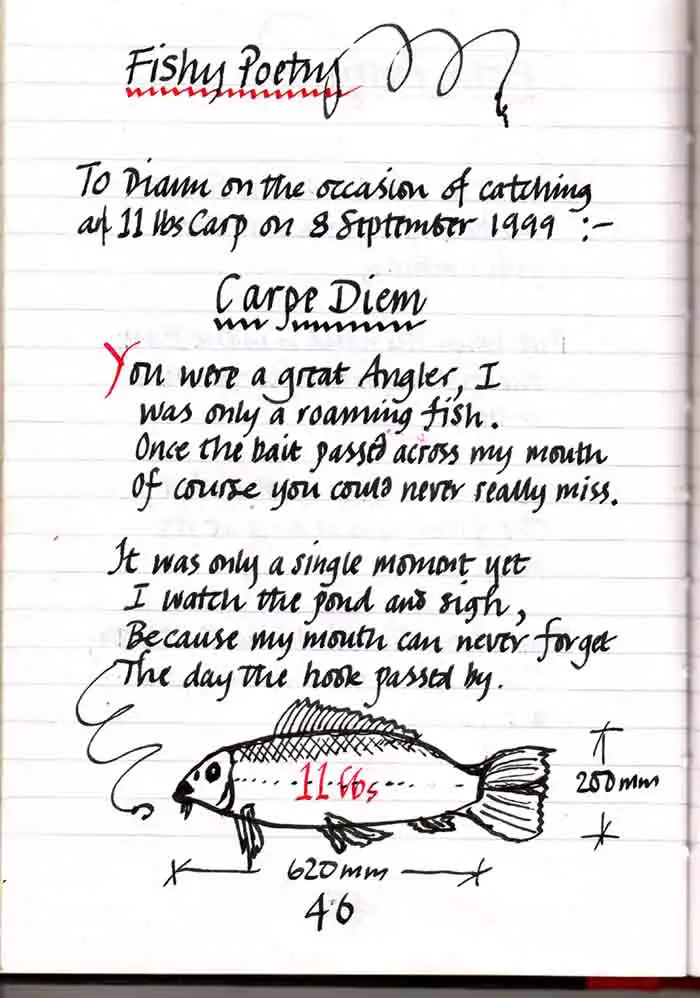 Fishy Poetry
To Diann on the occasion of catching
an 11 lbs Carp on 8 September 1999 :-
Carpe Diem
You were a great Angler, I
was only a roaming fish.
Once the bait passed across my mouth
Of course you could never really miss.
It was only a single moment yet
I watch the pond and sigh,
Because my mouth can never forget
The day the hook passed by.
11 lbs
200mm
620mm
46